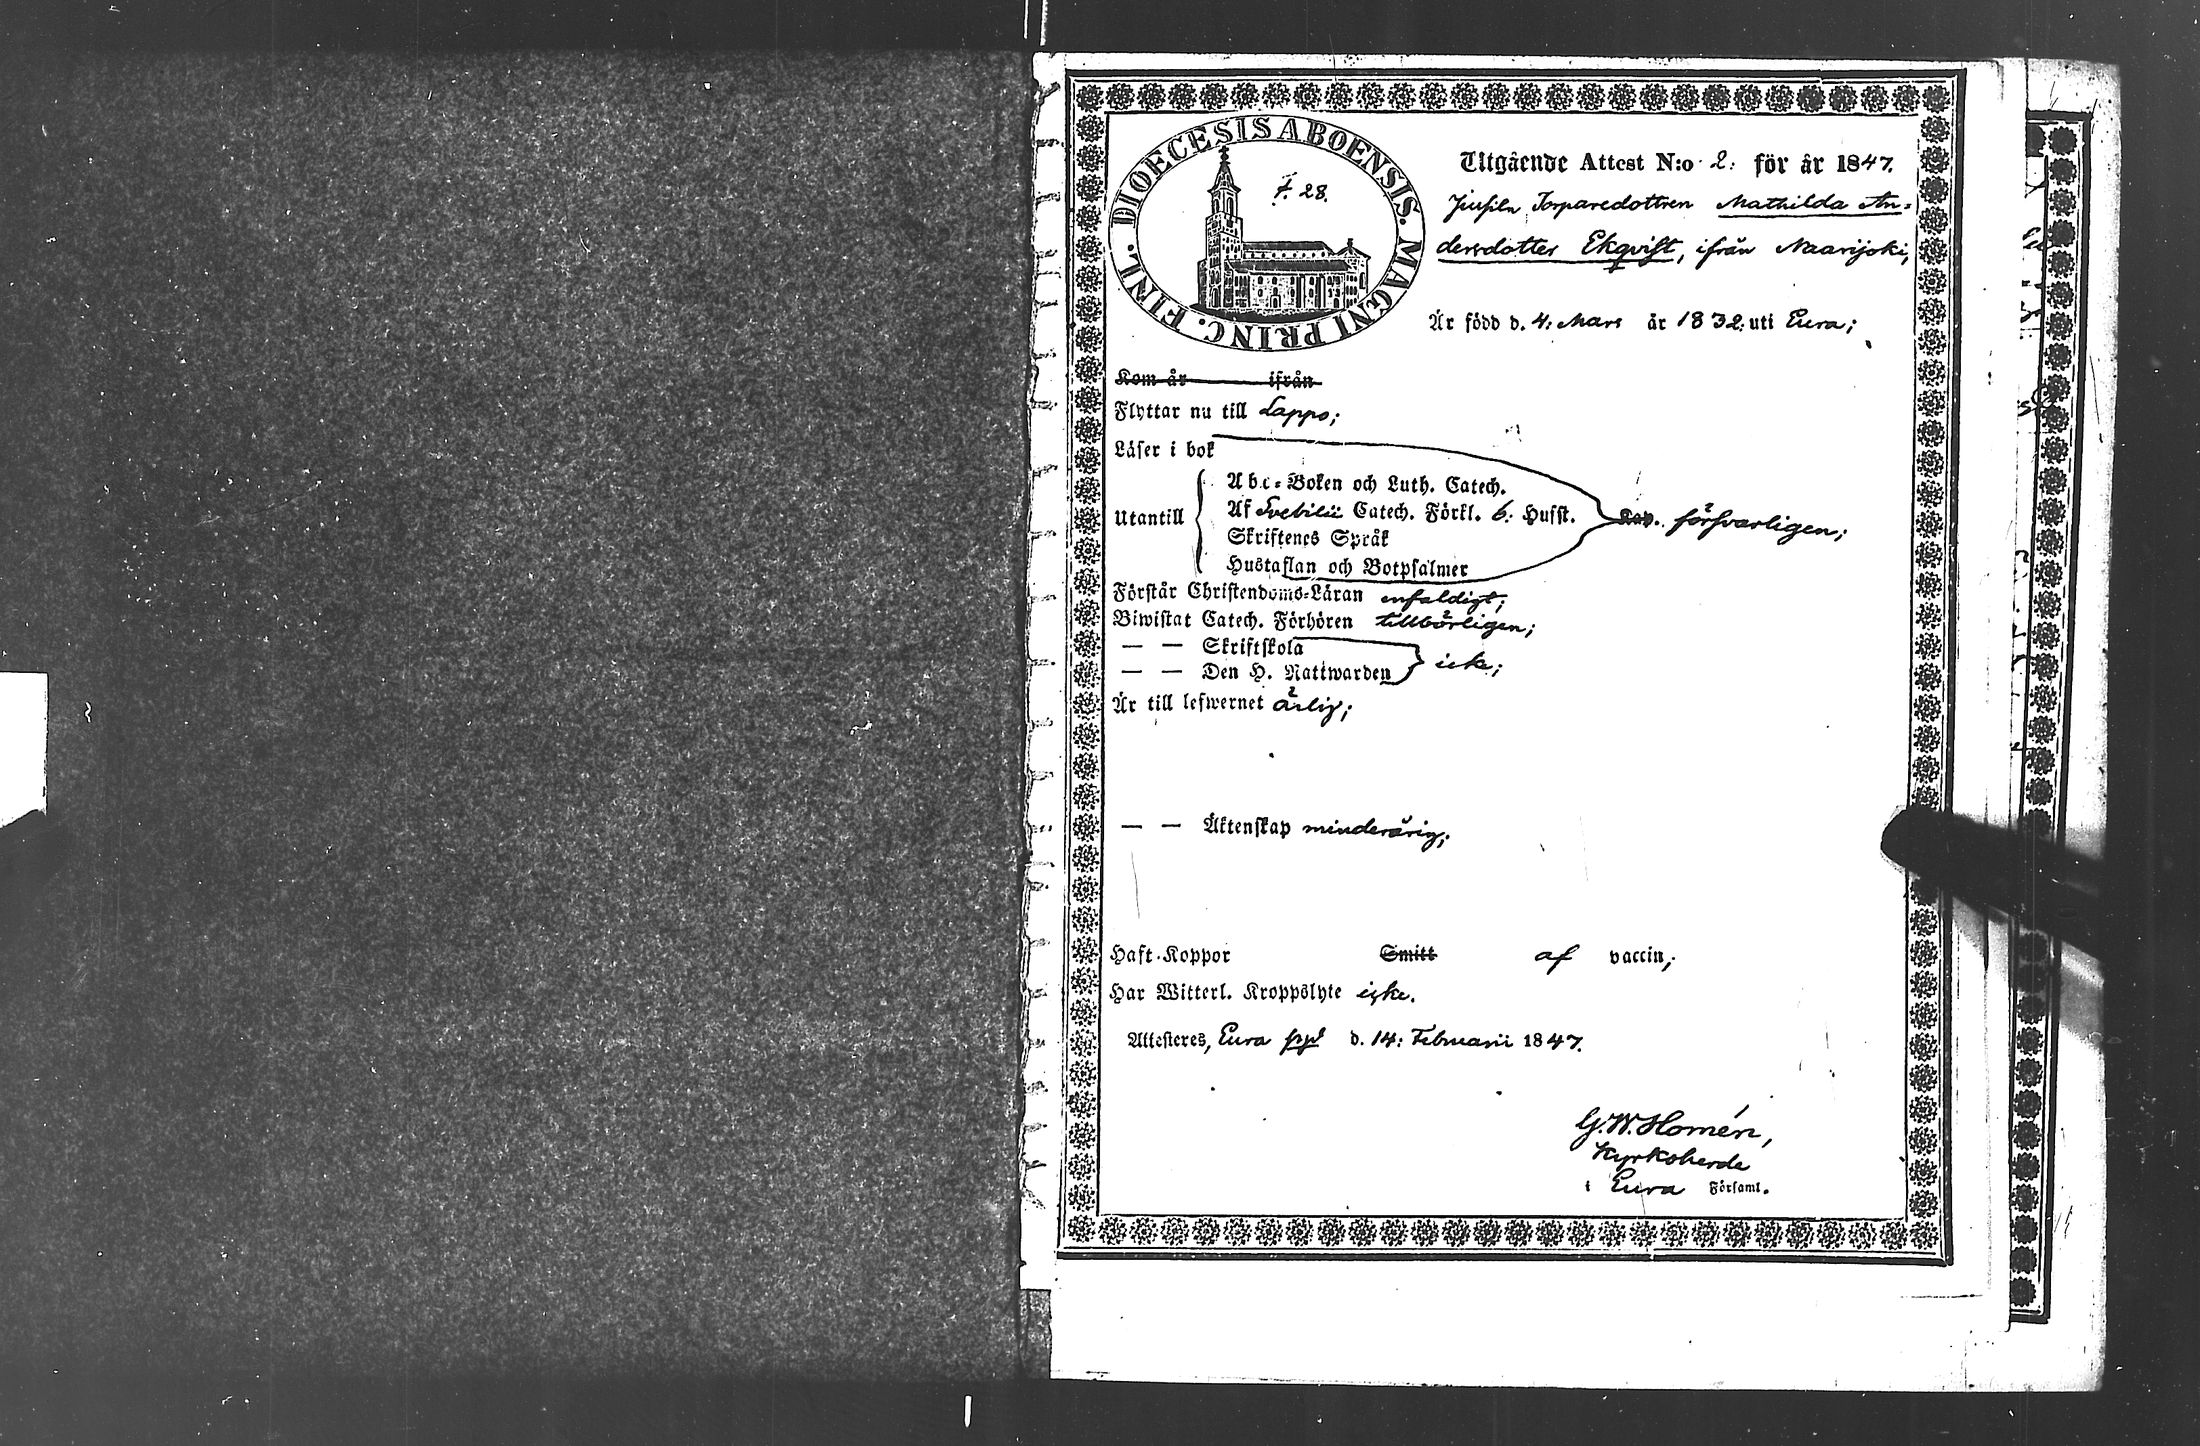 DIOECESIS ABOENSIS. MAGNI PRINC. FINL.
F. 28.
Utgående Attest N:o 2. för år 1847.
Torparedottren Mathilda An-
dersdotter Ekqvist, ifrån Naarijoki,
Är född d. 4: Mars år 1832. uti Eura;
Kom år ifrån
Flyttar nu till Lappo;
Läser i bok
Utantill
Abc-Boken och Luth. Catech.
Af Svebilii Catech. Förkl. 6: Hufst.
Skriftenes Språk
Hustaflan och Botpsalmer
försvarligen;
Förstår Christendoms-Läran enfaldigt;
Biwistat Catech. Förhören tillbörligen;
— — Skriftskola
— — Den H. Nattwarden
icke;
Är till lefwernet ärlig;
— — Äktenskap minderårig;
Haft Koppor Smitt af vaccin;
Har Witterl. Kroppslyte icke.
Attesteres, Eura d. 14: Februarii 1847.
G.W. Homén,
Kyrkoherde
i Eura Församl.